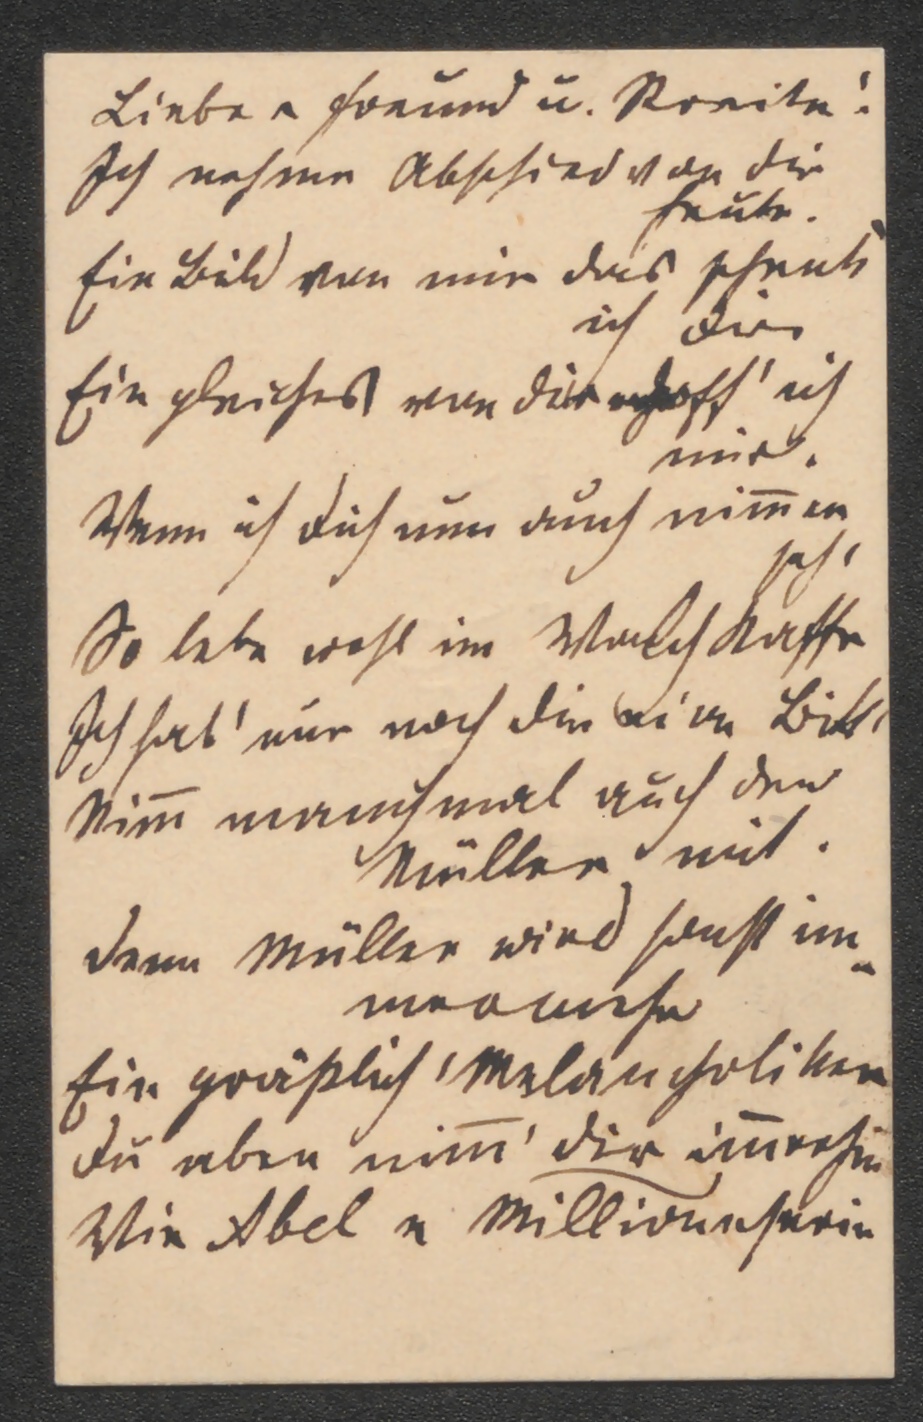 Lieber Freund u. Kneite!
Ich nehme Abschied von dir
heute.
Ein Bild von mir das schenk'
ich dir.
Ein gleiches von dir erhoff' ich
mir.
Wenn ich dich nun auch nimmer
seh'
So lebe wohl im Walch Kaffe
Ich hab' nur noch die eine Bitt'
Nim̅ manchmal auch den
Müller mit.
Denn Müller wird sonst im-
mermehr
Ein gräßlich' Melancholiker
Du aber nim̅' dir im̅erhin
Wie Abel e Millioneserin